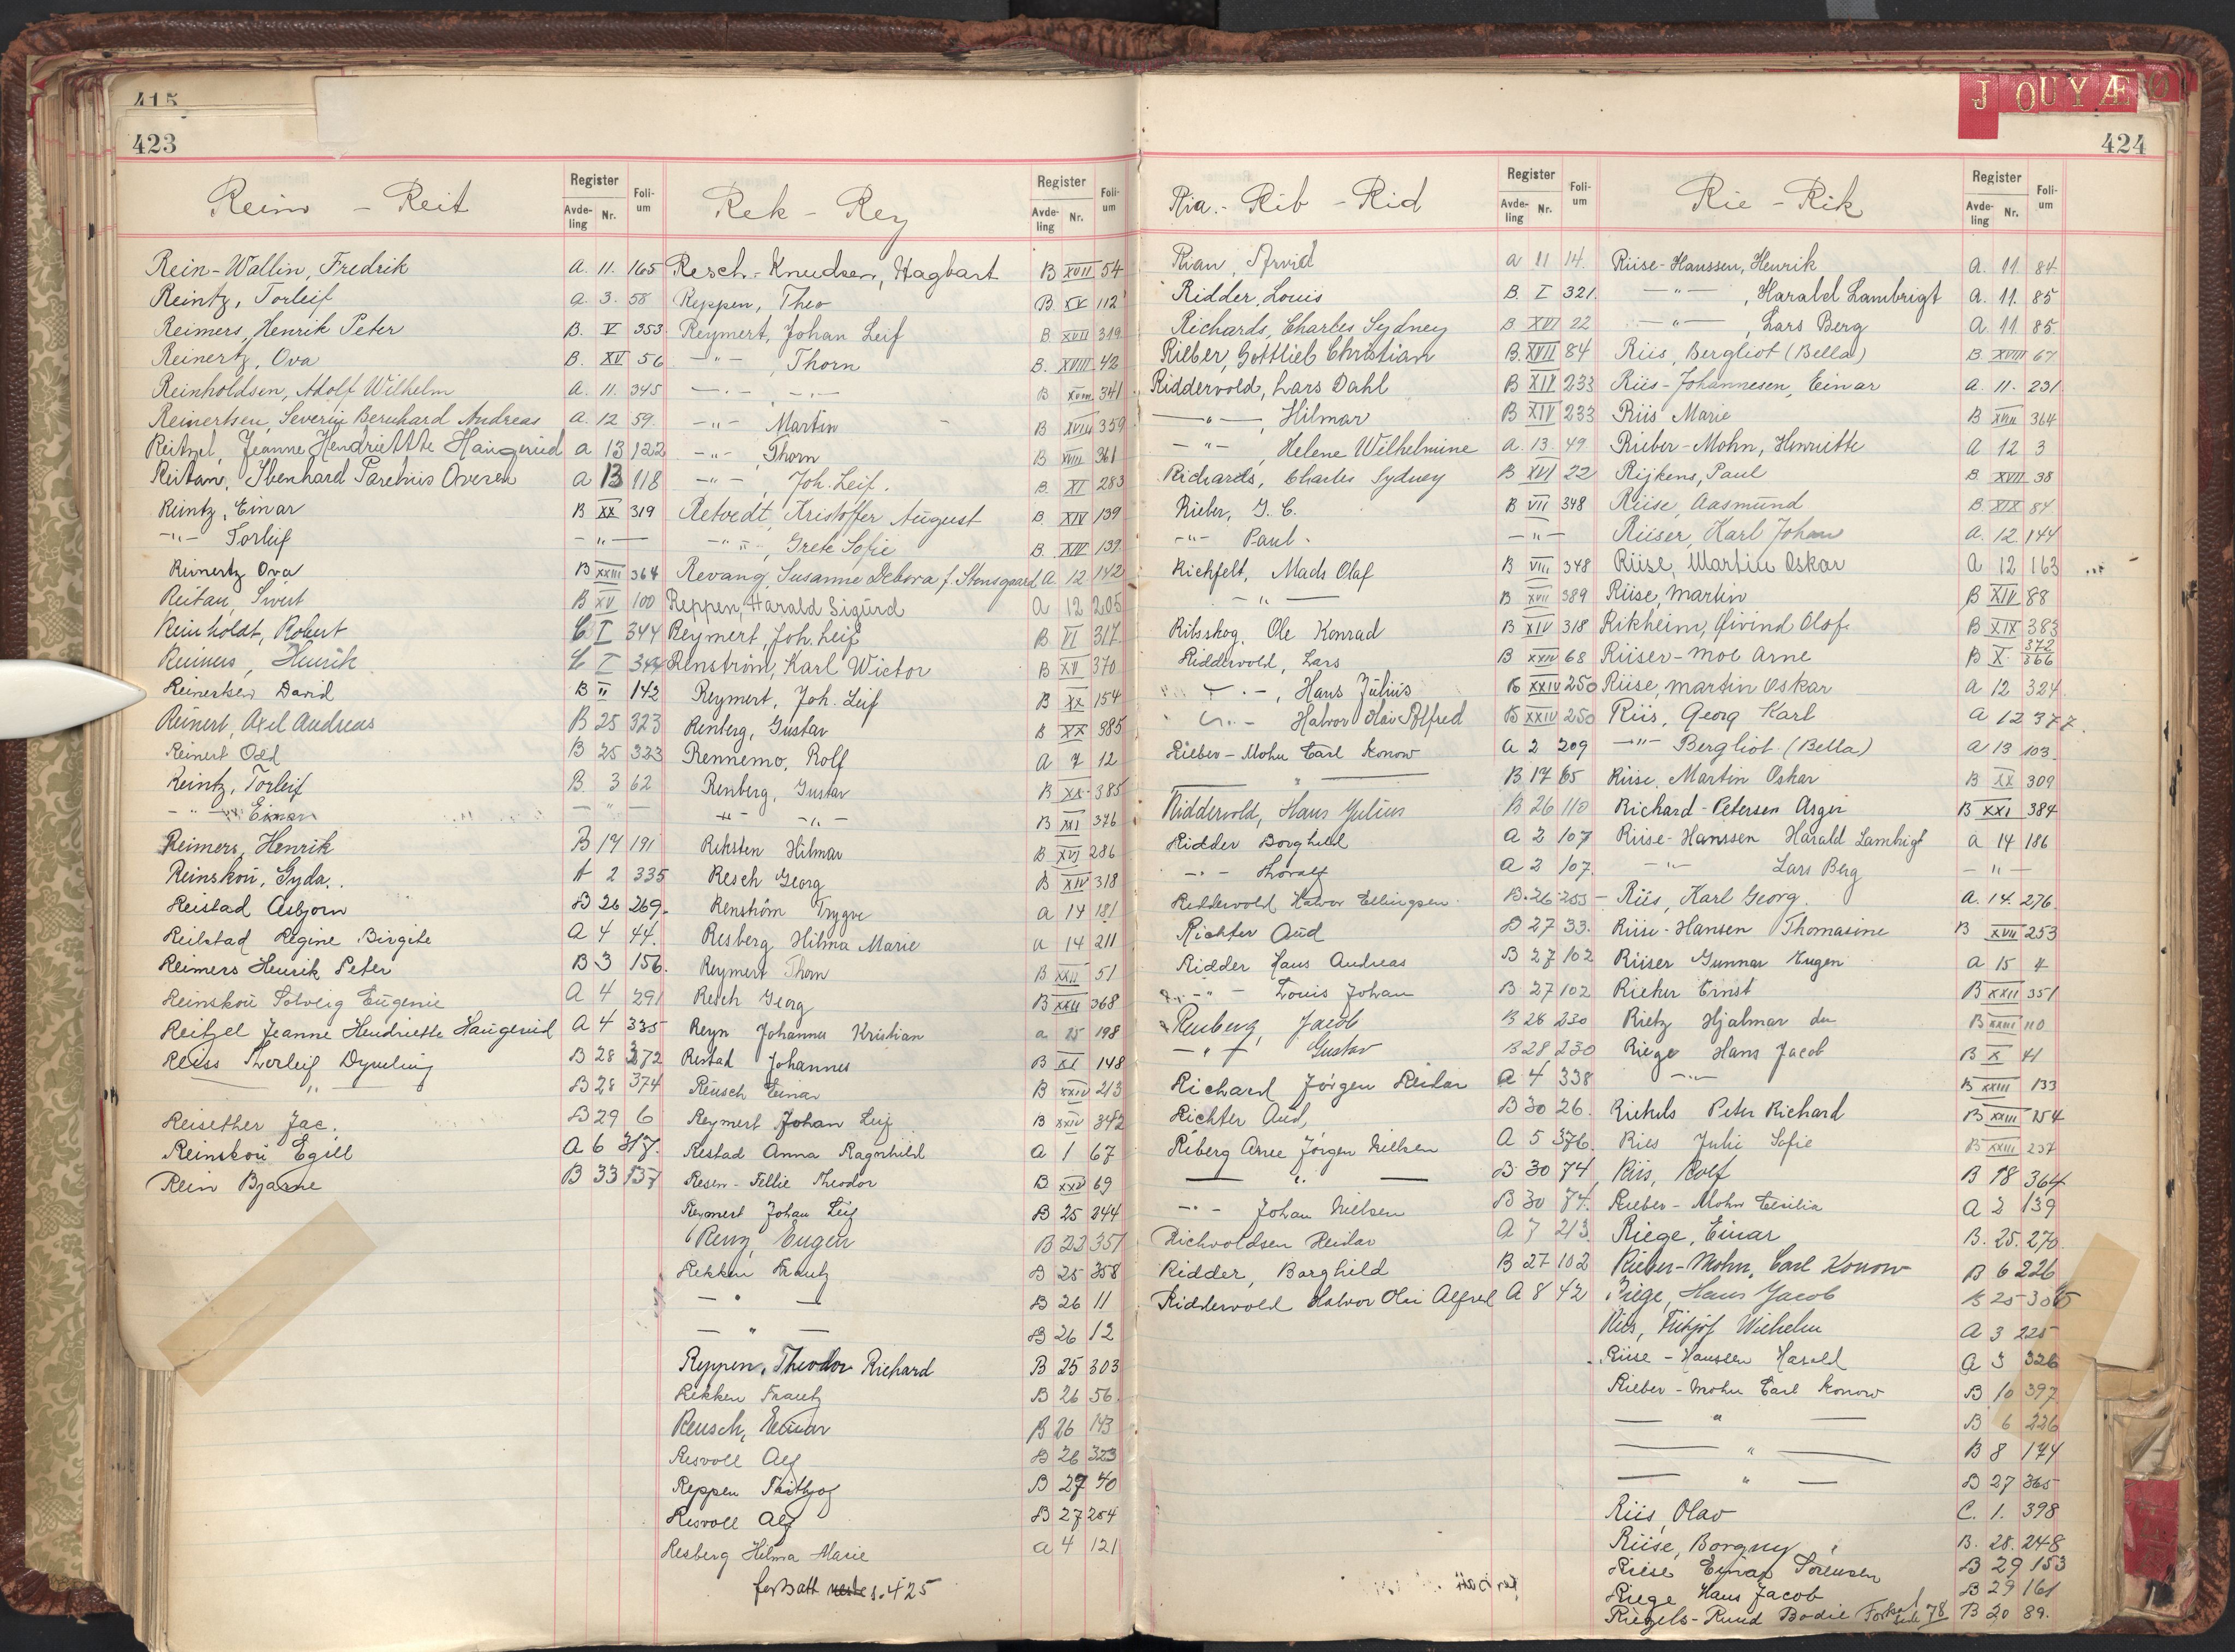 415
423
Register
Avde-ling Nr.
Foli-um
Rein-Wallin, Fredrik A. 11. 165
Reintz, Torleif A. 3. 58
Reimers, Henrik Peter B. V 353
Reinertz, Ova B. XV 56
Reinholdsen, Adolf Wilhelm A. 11. 345
Reinertsen, Severin Bernhard Andreas A. 12 59
Reitzel, Jeanne Hendriette Haugerud A 13 122
Reitan, A 13 118
Reintz, Einar B XX 319
-"- Torleif -"-
Reinertz Ova B XXIII 364
Reitan, Sivert B XV 100
Reinholdt, Robert C I 344
Reimers, Henrik C I 344
Reinertsen David B II 142
Reinert, Axel Andreas B 25 323
Reinert Odd B 25 323
Reintz, Torleif B. 3 62
-"- Einar -"-
Reimers, Henrik B 14 191
Reinskou, Gyda. A 2 335
Reistad Asbjørn B 26 269.
Reilstad Regine Birgite A 4 44.
Reimers Henrik Peter B 3 156.
Reinskou Solveig Eugenie A 4 291
Reitzel Jeanne Hendriette Haugerud A 4 335
Reiss Thorleif B 28 372
-"- B 28 374
Reisether Jac. B 29 6
Reinskou Egill A 6 317.
Rein Bjarne B 33 137
Rek - Rey
Register
Avde-ling Nr.
Foli-um
Resch-Knudsen, Hagbart B XVII 54
Reppen, Theo B. XX 112
Reymert, Johan Leif B XVII 319
-"- , Thorn B. XVIII 42
-"- -"- B XVIII 341
-"- Martin B XVIII 359
-"- , Thorn B XVIII 361
-"- , Joh. Leif. B. XI 283
Retvedt, Kristoffer August B XIV 139
-"- , Grete Sofie B. XIV 139.
Revang, Susanne Debora f. Stensgaard, A. 12 142
Reppen, Harald Sigurd A 12 205
Reymert, Joh. Leif B VI 317.
Renström, Karl Wictor B XV 370
Reymert, Joh. Leif B XX 154
Renberg, Gustav B XX 385
Rennemo, Rolf A 7 12
Renberg, Gustav B XX 385
-"- -"- B XXI 376
Reksten Hilmar B XVI 286
Resch Georg B XIV 318
Renström Trygve A 14 181
Resberg Hilma Marie A 14 211
Reymert Thorn B XXII 51
Resch Georg B XXII 368
Reyn Johannes Kristian A 25 198
Restad Johannes B XI 148
Reusch Einar B XXIV 213
Reymert Johan Leif B XXIV 342
Restad Anna Ragnhild A 1 67
Resen-Fellie Theodor B XXV 69
Reymert Johan Leif B 25 244
Renz, Eugen B 22 351
Rekken Frantz B 25 358
-"- B 26 11
-"- B 26 12
Reppen, Theodor Richard B 25 303
Rekken Frantz B 26 56.
Reusch, Einar B 26 143
Resvoll Alf B 26 323
Reppen B 27 40
Resvoll Alf B 27 254
Resberg Hilma Marie A 4 121
fortsatt neste s. 425
J O U Y Æ Ø
424
Ria. - Rib - Rid
Register
Avde-ling Nr.
Foli-um
Rian, Arvid A 11 14.
Ridder, Louis B. I 321.
Richards, Charles Sydney B. XVI 22
Rieber, Gottlieb Christian B. XVII 84
Riddervold, Lars Dahl B XIV 233
-"- , Hilmar B XIV 233
-"- , Helene Wilhelmine A. 13. 49
Richards, Charles Sydney B XVI 22
Rieber, G. C. B VII 348
-"- Paul. -"-
Richfelt, Mads Olaf B VIII 348
-"- B XVII 389
Ribsskog, Ole Konrad B XIV 318
Riddervold, Lars B XXIV 68
-"-, Hans Julius B XXIV 250
-"- Halvor Olai Alfred B XXIV 250
Rieber-Mohn Carl Konow A 2 209
-"- B 17 65
Riddervold, Hans Julius B 26 110
Ridder Borghild A 2 107
-"- Thoralf A 2 107.
Riddervold Halvor Ellingsen B. 26 253
Richter Aud B 27 33.
Ridder Hans Andreas B 27 102
-"- Louis Johan B 27 102
Jacob B 28 230
-"- Gustav B 28 230
Richard Jörgen Reidar A 4 338
Richter Aud, B 30 26.
Riberg Arne Jörgen Nielsen A 5 376.
-"- B 30 74
-"- Johan Nielsen B 30 74.
Richvoldsen Reidar A 7 213.
Ridder, Borghild B 27 102
Riddervold Halvor Olai Alfred A 8 42
Rie - Rik
Register
Avde-ling Nr.
Foli-um
Riise-Hanssen, Henrik A. 11. 84.
-"- , Harald Lambrigt A. 11. 85
-"- , Lars Berg A. 11. 85.
Riis, Bergliot (Bella) B XVIII 67.
Riis-Johannesen, Einar A. 11. 231
Riis Marie B XVIII 364
Rieber-Mohn, Henriette A 12 3
Rijkens, Paul B XVII 38
Riise, Aasmund B. XIX 84
Riiser, Karl Johan A. 12 144
Riise, Martin Oskar A 12 163
Riise, Martin B XIV 88
Rikheim, Øivind Olaf. B XIX 383
Riiser-Moe Arne B X 372 366
Riise, Martin Oskar A 12 324.
Riis, Georg Karl A 12 377.
-"- Bergliot (Bella) A 13 103.
Riise, Martin Oskar B XX 309
Richard-Petersen Asger B XXI 384
Riise-Hanssen Harald Lambrigt A 14 186
-"- Lars Berg -"-
Riis, Karl Georg. A. 14. 276.
Riise-Hansen Thomasine B XVII 253
Riiser Gunnar Hugen A 15 4
Richter Ernst B XXII 351
Rietz Hjalmar du B XXIII 110
Riege Hans Jacob B X 41
-"- B XXIII 133
Peter Richard B XXIII 154
Ries Julie Sofie B XXIII 237
Riis, Rolf B 18 364
Rieber-Mohn Cecilia A 2 139
Riege, Einar B. 25. 270.
Rieber-Mohn, Carl Konow B 6 226
Riege, Hans Jacob B 25 305
Riis, Fritjof Wilhelm A 3 225
Riise-Hanssen Harald A 3 326
Rieber-Mohn Carl Konow B 10 397
-"- B 6 226
-"- B 8 174
-"- B 27 365
Riis, Olav C. 1. 398
Riise, Borgny B. 28. 248
Riise Einar Sörensen B 29 153
Riege Hans Jacob B 29 161
Riegels-Ruud Bodil Forts. side 78 B 20 89.